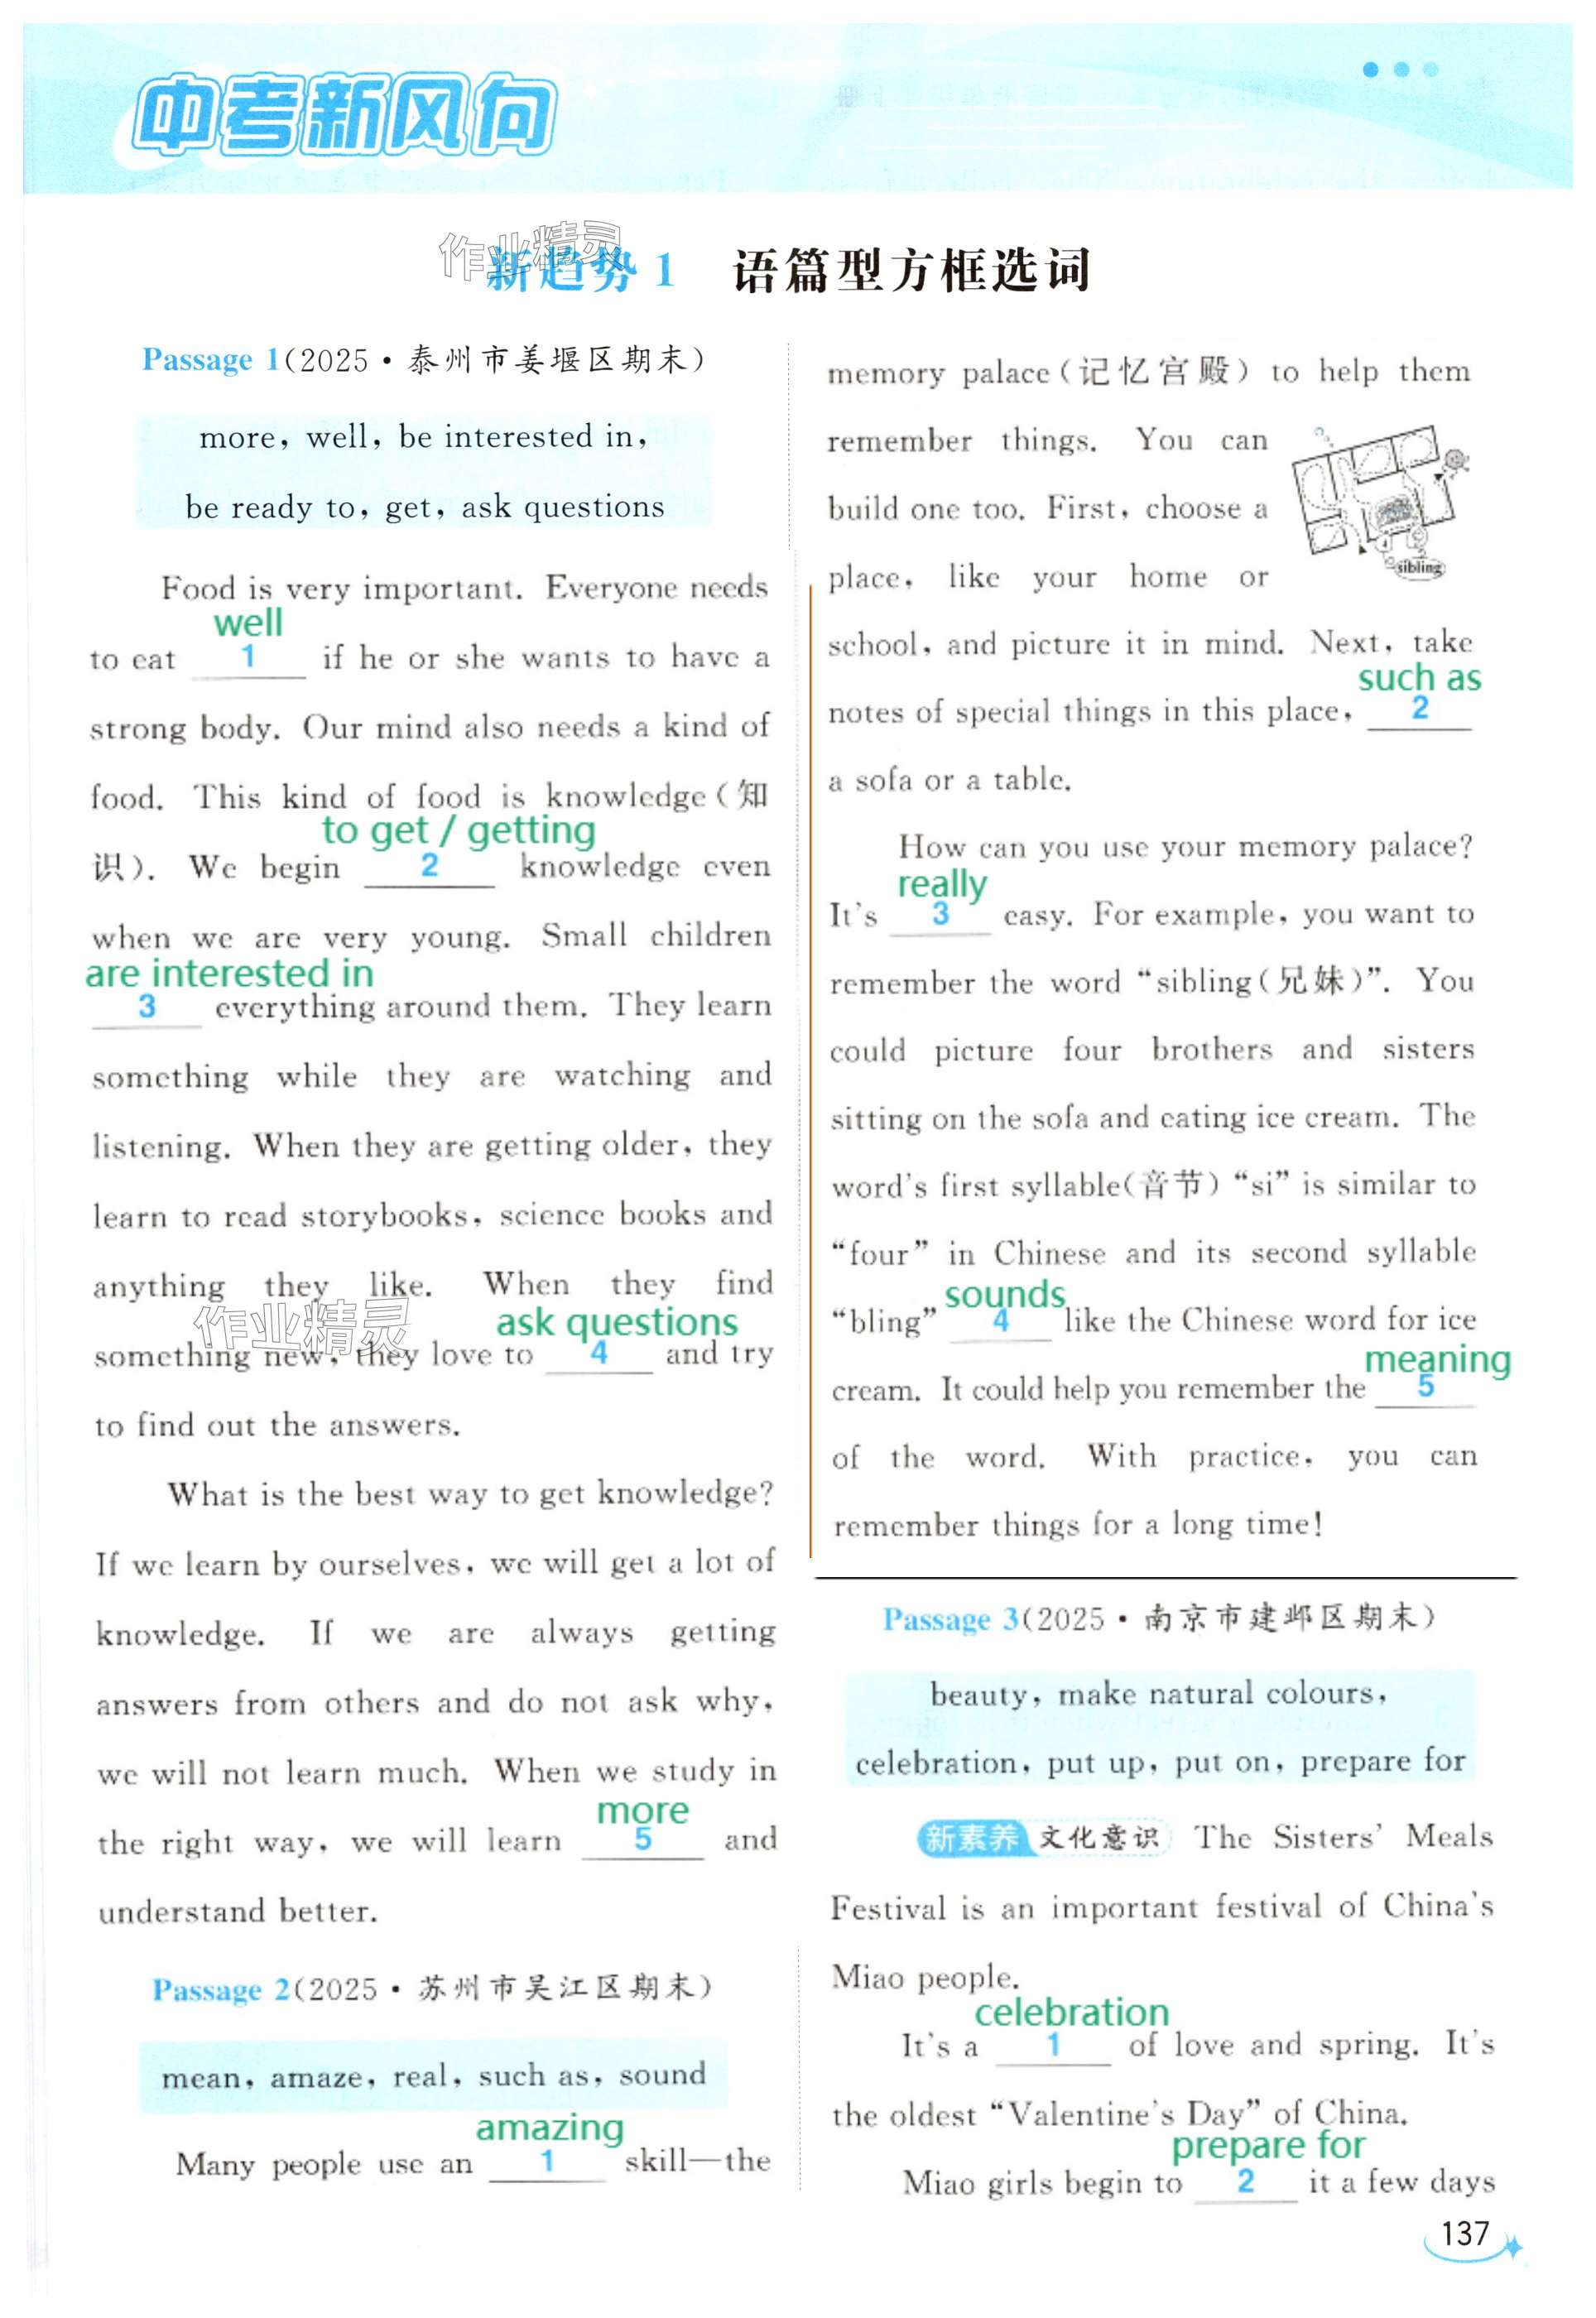 中考新风向
作业精灵
新趋势1 语篇型方框选词
Passage 1(2025·泰州市姜堰区期末)
more, well, be interested in,
be ready to, get, ask questions
Food is very important. Everyone needs
well
to eat 1 if he or she wants to have a
strong body. Our mind also needs a kind of
food. This kind of food is knowledge(知
to get / getting
识). We begin 2 knowledge even
when we are very young. Small children
are interested in
3 everything around them. They learn
something while they are watching and
listening. When they are getting older, they
learn to read storybooks, science books and
anything they like. When they find
作业精灵
ask questions
something new, they love to 4 and try
to find out the answers.
What is the best way to get knowledge?
If we learn by ourselves, we will get a lot of
knowledge. If we are always getting
answers from others and do not ask why,
we will not learn much. When we study in
more
the right way, we will learn 5 and
understand better.
Passage 2(2025·苏州市吴江区期末)
mean, amaze, real, such as, sound
amazing
Many people use an 1 skill—the
memory palace(记忆宫殿) to help them
remember things. You can
build one too. First, choose a
place, like your home or
sibling
school, and picture it in mind. Next, take
such as
notes of special things in this place, 2
a sofa or a table.
How can you use your memory palace?
really
It's 3 easy. For example, you want to
remember the word “sibling(兄妹)”. You
could picture four brothers and sisters
sitting on the sofa and eating ice cream. The
word's first syllable(音节) “si” is similar to
“four” in Chinese and its second syllable
sounds
“bling” 4 like the Chinese word for ice
meaning
cream. It could help you remember the 5
of the word. With practice, you can
remember things for a long time!
Passage 3(2025·南京市建邺区期末)
beauty, make natural colours,
celebration, put up, put on, prepare for
新素养 文化意识 The Sisters' Meals
Festival is an important festival of China's
Miao people.
celebration
It's a 1 of love and spring. It's
the oldest “Valentine's Day” of China.
prepare for
Miao girls begin to 2 it a few days
137